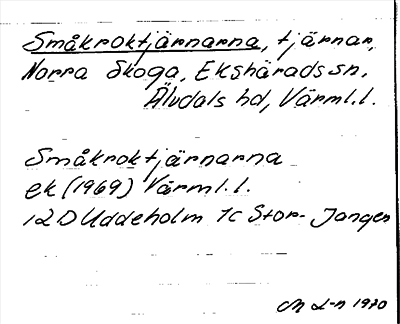 Småkroktjärnarna, tjärnar,
Norra Skoga, Ekshärads sn,
Älvdals hd, Värml.l.
Småkroktjärnarna
ek (1969) Värml.l.
12D Uddeholm 1c Stor-Jangen
L-n 1970